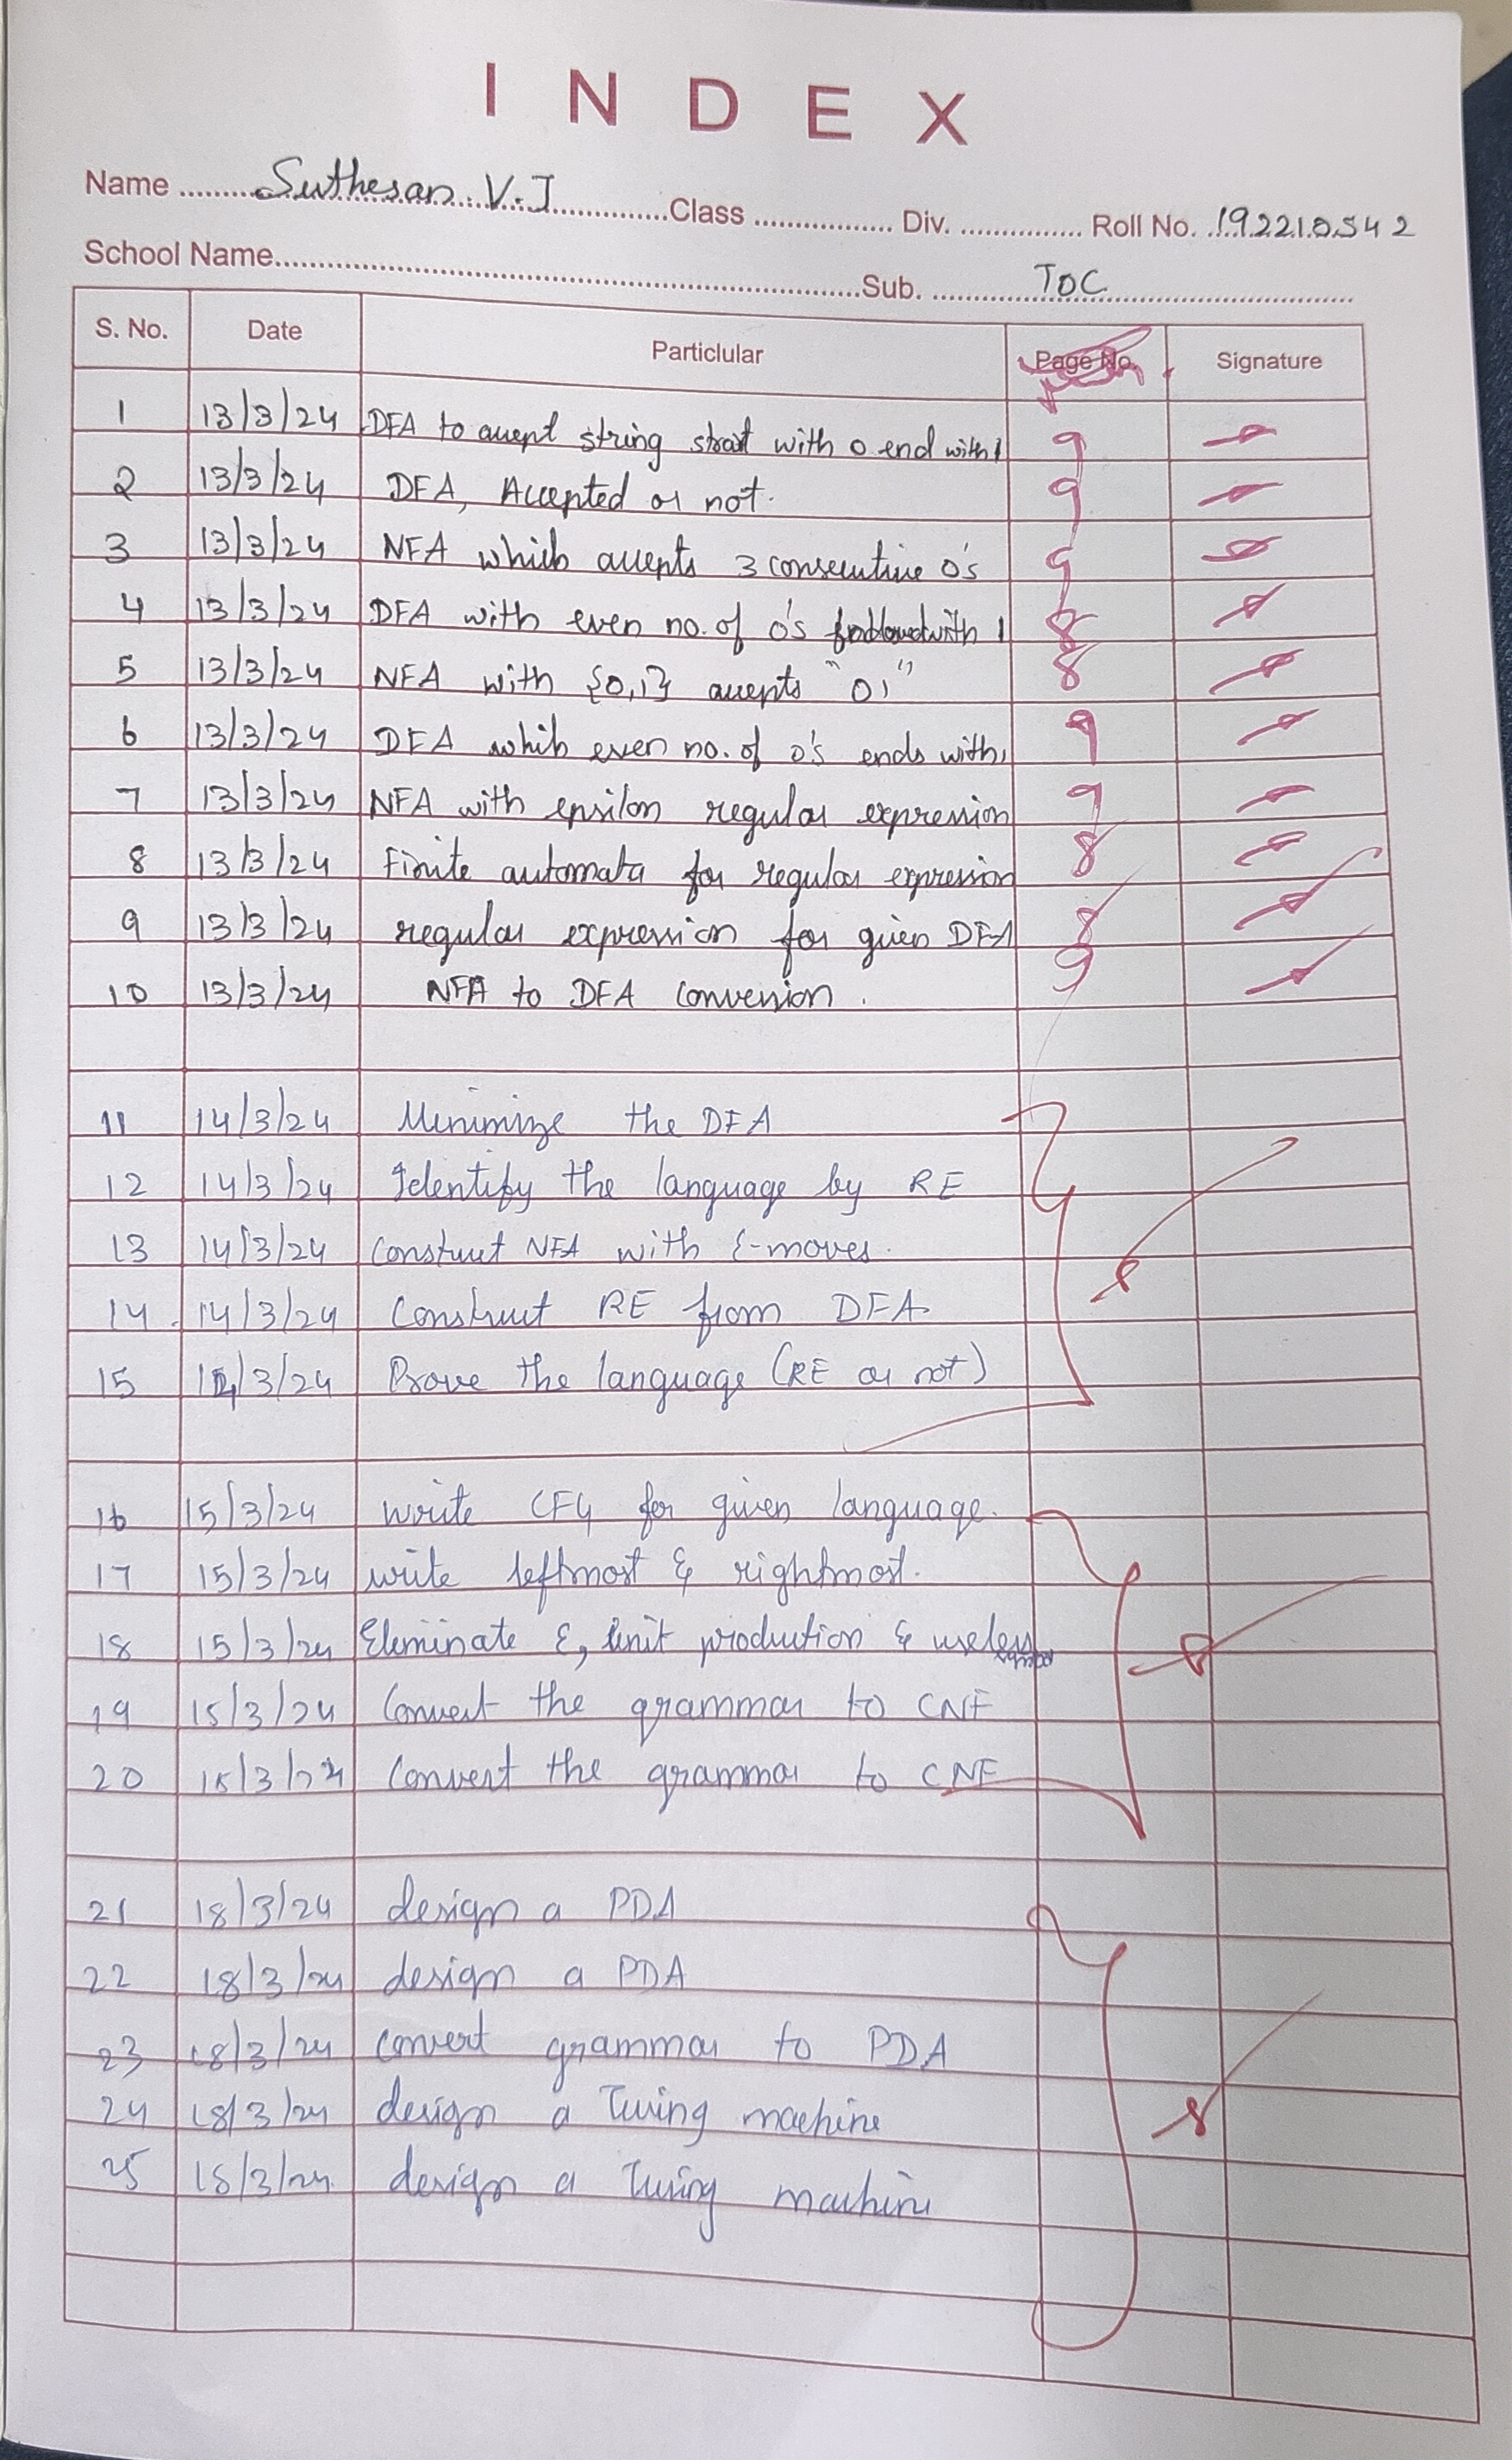 INDEX
Name Suthesan. V.J Class Div. Roll No. 192210542
School Name Sub. TOC
S. No. Date Particlular Page No. Signature
1 13/3/24 DFA to accept string start with 0 end with 1 9
2 13/3/24 DFA, Accepted or not. 9
3 13/3/24 NFA which accepts 3 consecutive 0's 9
4 13/3/24 DFA with even no. of 0's with 1 8
5 13/3/24 NFA with {0,1} accepts "01" 8
6 13/3/24 DFA which even no. of 0's ends with 1 9
7 13/3/24 NFA with epsilon regular expression 9
8 13/3/24 Finite automata for regular expression 8
9 13/3/24 regular expression for given DFA 8
10 13/3/24 NFA to DFA conversion. 9
11 14/3/24 Minimize the DFA
12 14/3/24 Identify the language by RE
13 14/3/24 Construct NFA with ε-moves.
14. 14/3/24 Construct RE from DFA.
15 14/3/24 Prove the language (RE or not)
16 15/3/24 write CFG for given language.
17 15/3/24 write leftmost & rightmost.
18 15/3/24 Eliminate ε, unit production & useless symbol
19 15/3/24 Convert the grammar to CNF
20 15/3/24 Convert the grammar to CNF
21 18/3/24 design a PDA
22 18/3/24 design a PDA
23 18/3/24 convert grammar to PDA
24 18/3/24 design a Turing machine
25 18/3/24 design a Turing machine